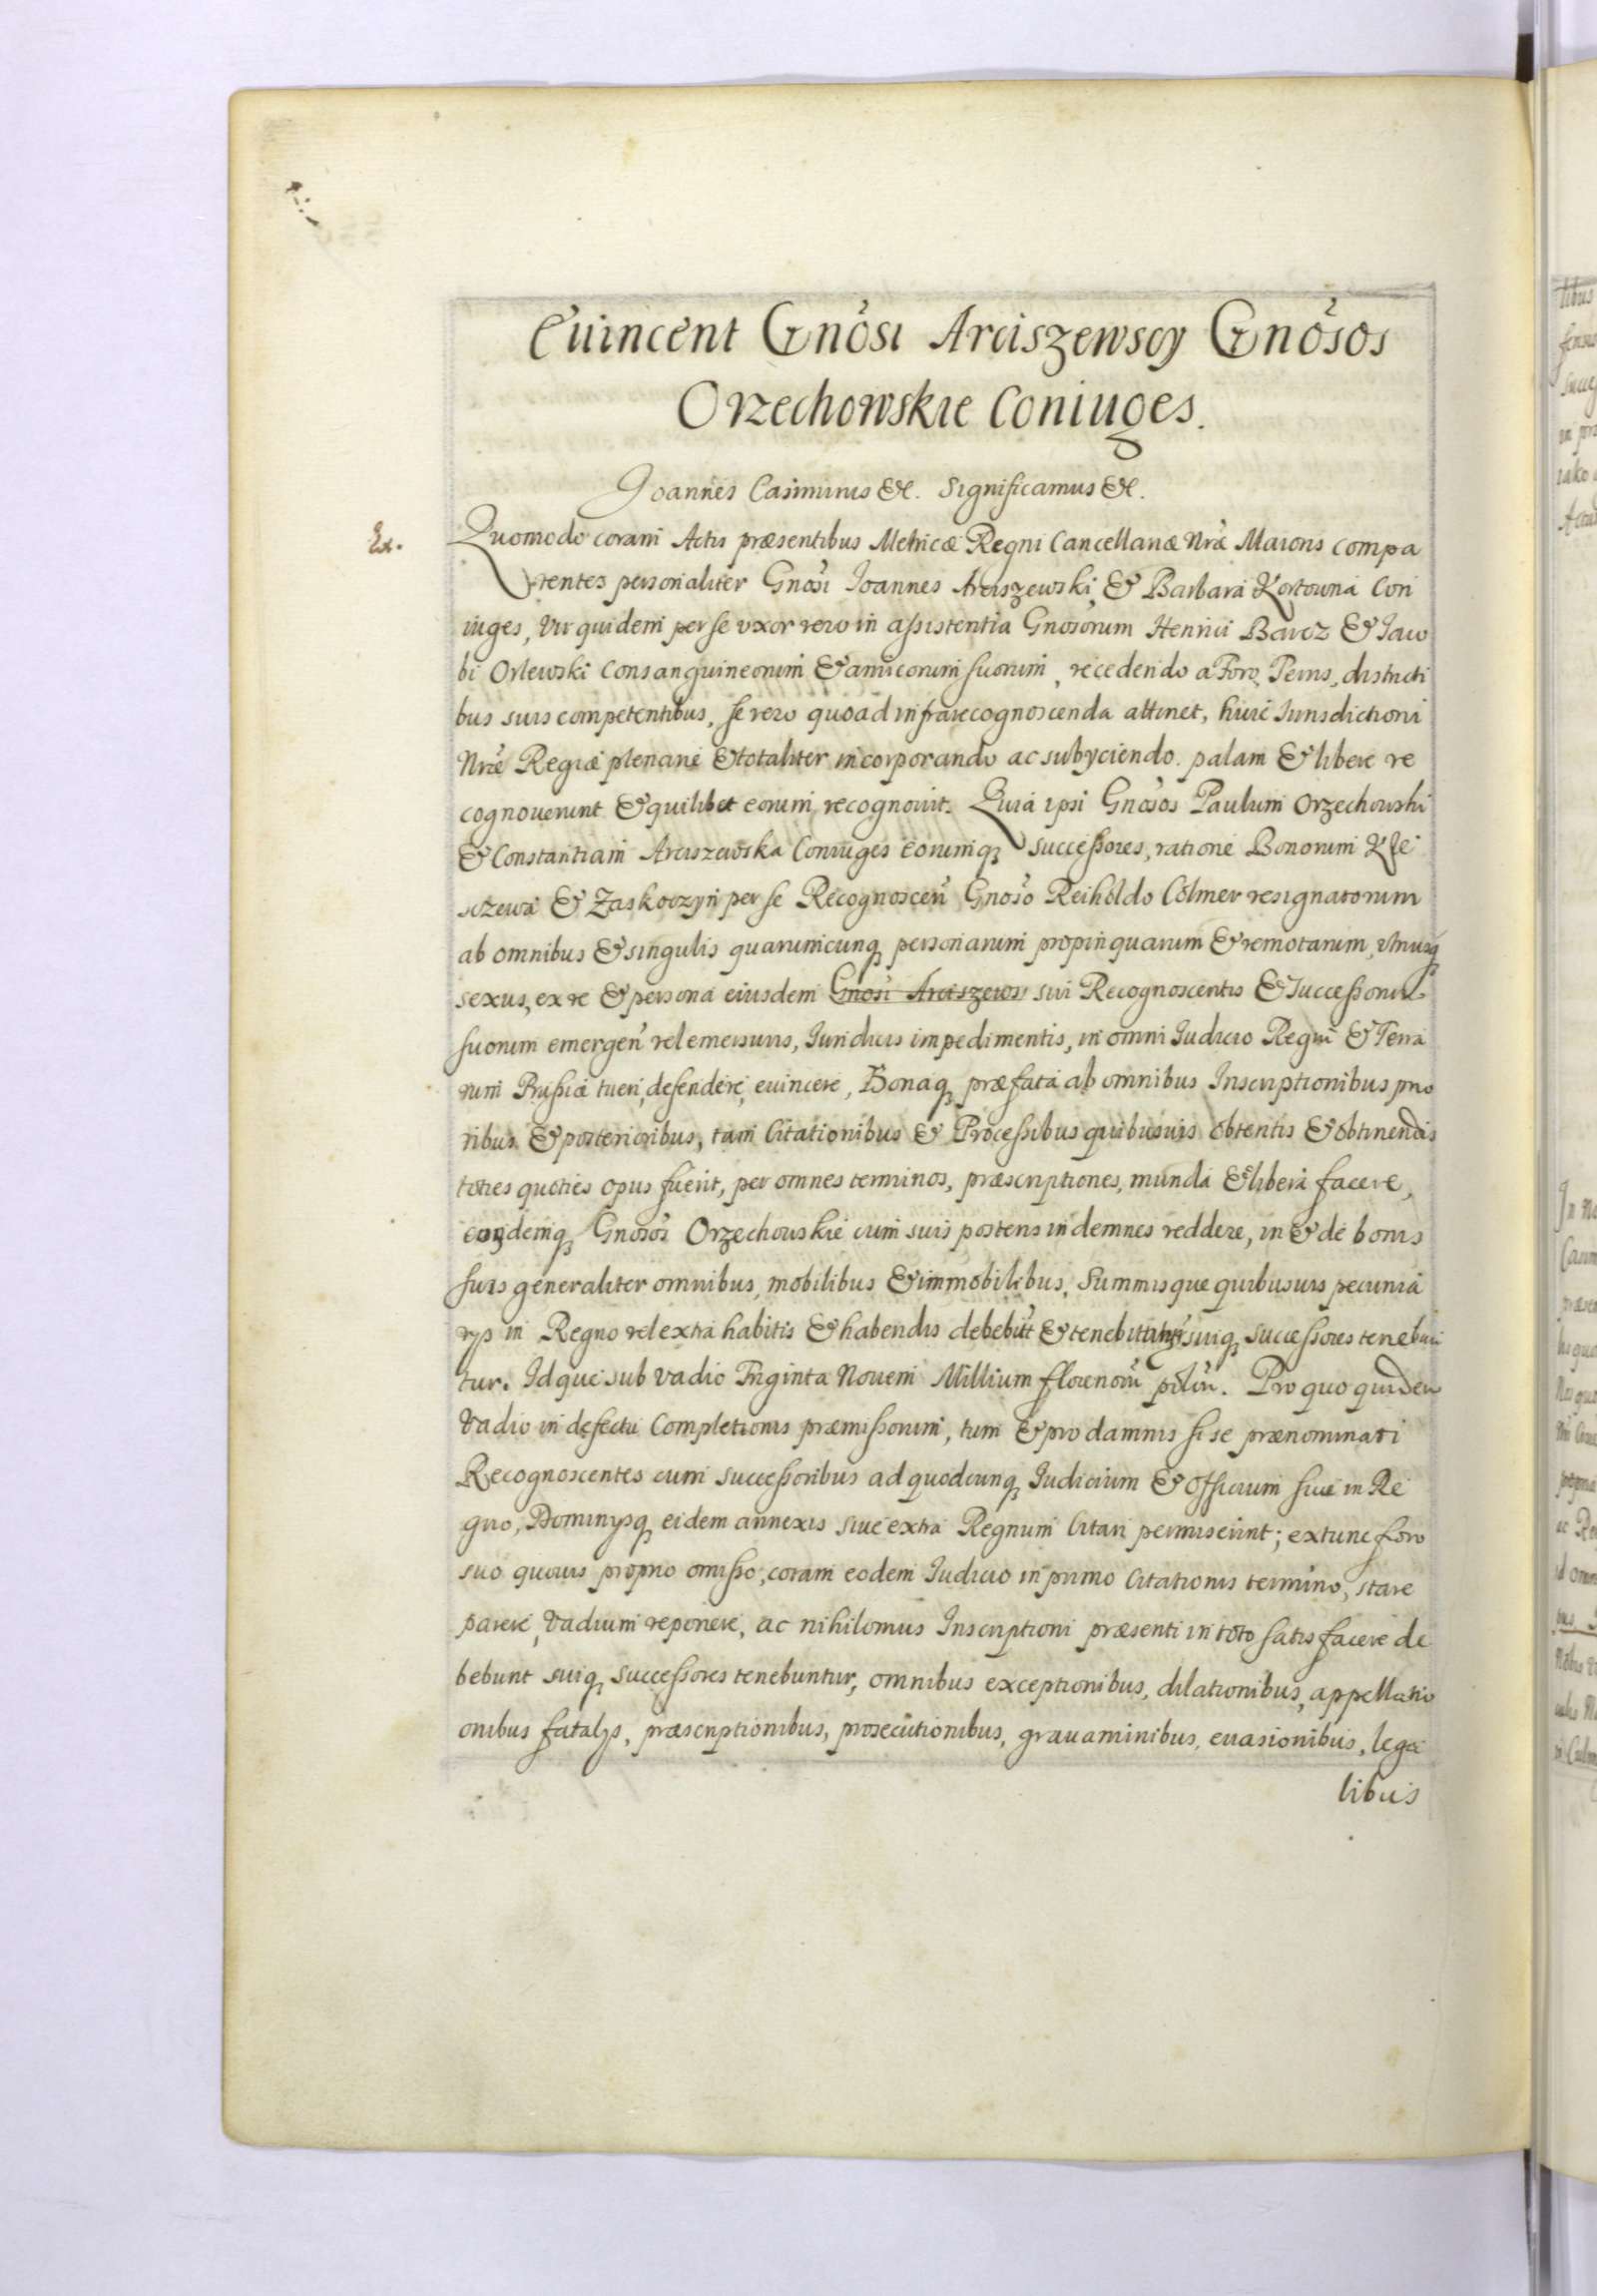 Euincent Gnosi Arciszewscy Gnosos
Orzechowskie Coniuges.
Joannes Casimirus &c. Significamus &c.
Ex.
Quomodo coram Actis præsentibus Metricæ Regni Cancellariæ Nræ Maioris compa
rentes personaliter Gnosi Joannes Arciszewski & Barbara Kortowna Con
iuges, Vir quidem per se vxor vero in assistentia Gnosorum Henrici Barcz & Jaco
bi Orlewski Consanguineorum & amicorum suorum, recedendo a Foro, Terris, districti
bus suis competentibus, se vero quoad infrarecognoscenda attinet, huic Jurisdictioni
Nræ Regiæ plenarie & totaliter incorporando ac subyciendo. palam & libere re
cognouerunt & quilibet eorum recognouit. Quia ipsi Gnosos Paulum Orzechowski
& Constantiam Arciszewska Coniuges eorumq successores, ratione Bonorum Kle
sczewa & Zaskoczyn per se Recognoscen Gnoso Reiholdo Colmer resignatorum
ab omnibus & singulis quarumcunq personarum propinquarum & remotarum, vtriusq
sexus, ex re & persona eiusdem Gnosi Arciszews sui Recognoscentis & Successorum
suorum emergen vel emersuris, Juridicis impedimentis, in omni Judicio Regni & Terra
rum Prussiæ tueri, defendere, euincere, Bonaq præfata ab omnibus Inscriptionibus prio
ribus & posterioribus, tam Citationibus & Processibus quibusuis obtentis & obtinendis
toties quoties opus fuerit, per omnes terminos, præscriptiones, munda & libera facere,
eosdemq Gnosos Orzechowskie cum suis posteris indemnes reddere, in & de bonis
suis generaliter omnibus, mobilibus & immobilibus, Summisque quibusuis pecunia
rys in Regno vel extra habitis & habendis debebut & tenebutur suiq successores tenebun
tur. Idque sub vadio Triginta Nouem Millium florenorum polon. Pro quo quidem
Vadio in defectu Completionis præmissorum, tum & pro damnis si se prænominati
Recognoscentes cum successoribus ad quodcunq Judicium & Officium siue in Re
gno, Dominysq eidem annexis siue extra Regnum Citari permiserint; extunc foro
suo quouis proprio omisso, coram eodem Judicio in primo Citationis termino, stare
parere, Vadium reponere, ac nihilomus Inscriptioni præsenti in toto satisfacere de
bebunt suiq successores tenebuntur, omnibus exceptionibus, dilationibus, appellatio
onibus fatalys, præscriptionibus, prosecutionibus, grauaminibus, euasionibus, lega
libus